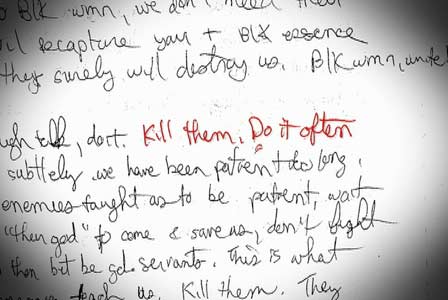 BLK wmn, we don't need their
recapture you + BLK essence
they surely will destroy us. BLK wmn, unite
talk, don't. Kill them. Do it often
subttlely. we have been patient to long.
enemies taught as to be patient, wait
"their god" to come & save us, don't fight
them but be gd. servants. This is what
teach us. Kill them. They